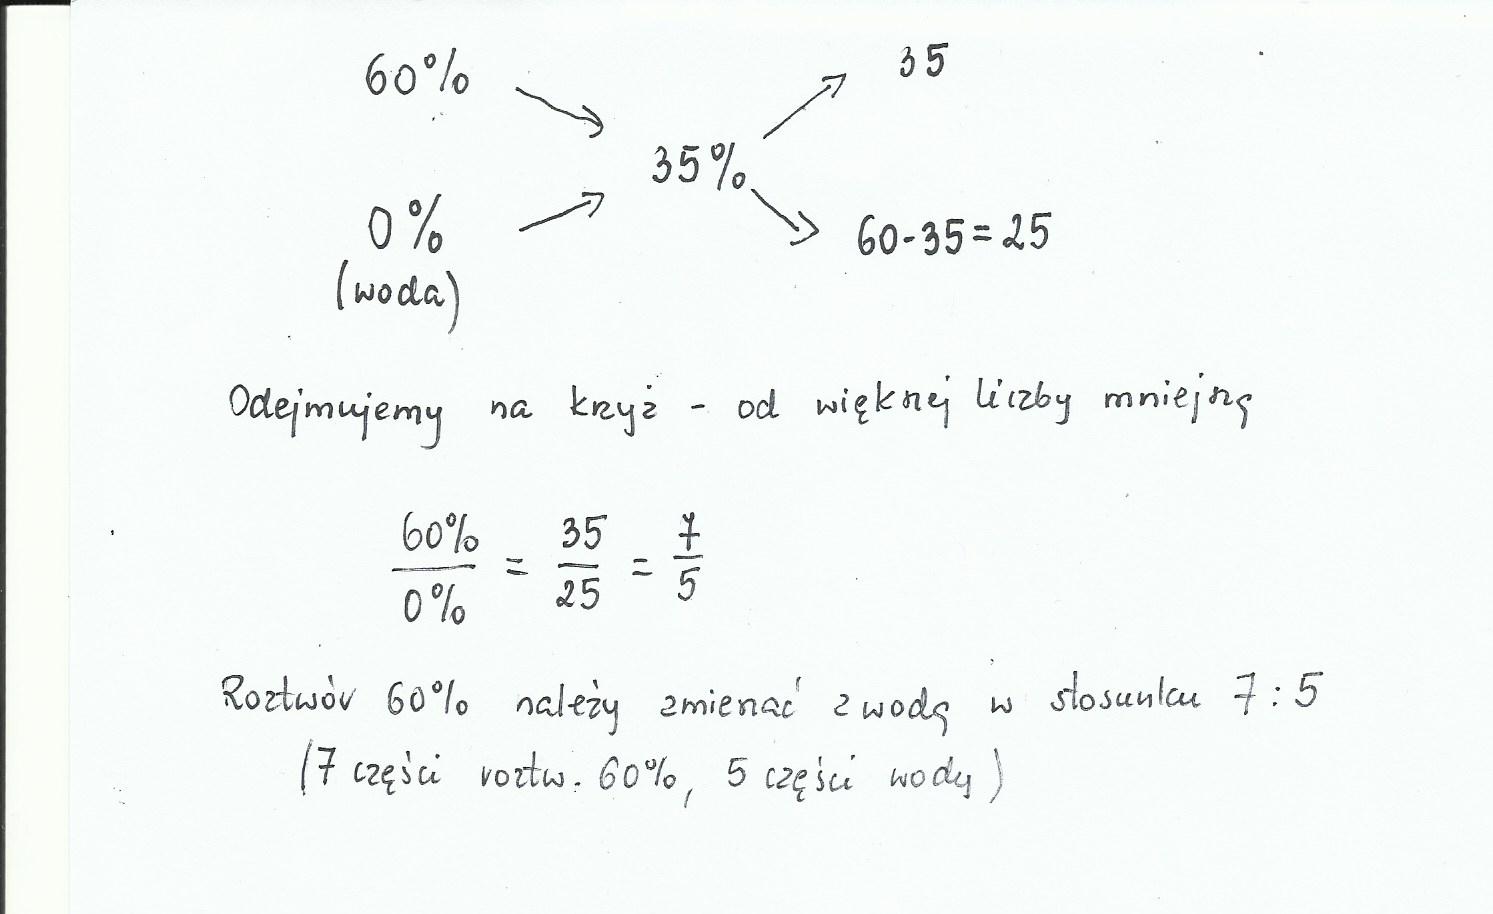 60% 35
35%
0% 60-35=25
(woda)
Odejmujemy na krzyż - od większej liczby mniejszą
60% / 0% = 35 / 25 = 7 / 5
Roztwór 60% należy zmieszać z wodą w stosunku 7:5
(7 części roztw. 60%, 5 części wody)